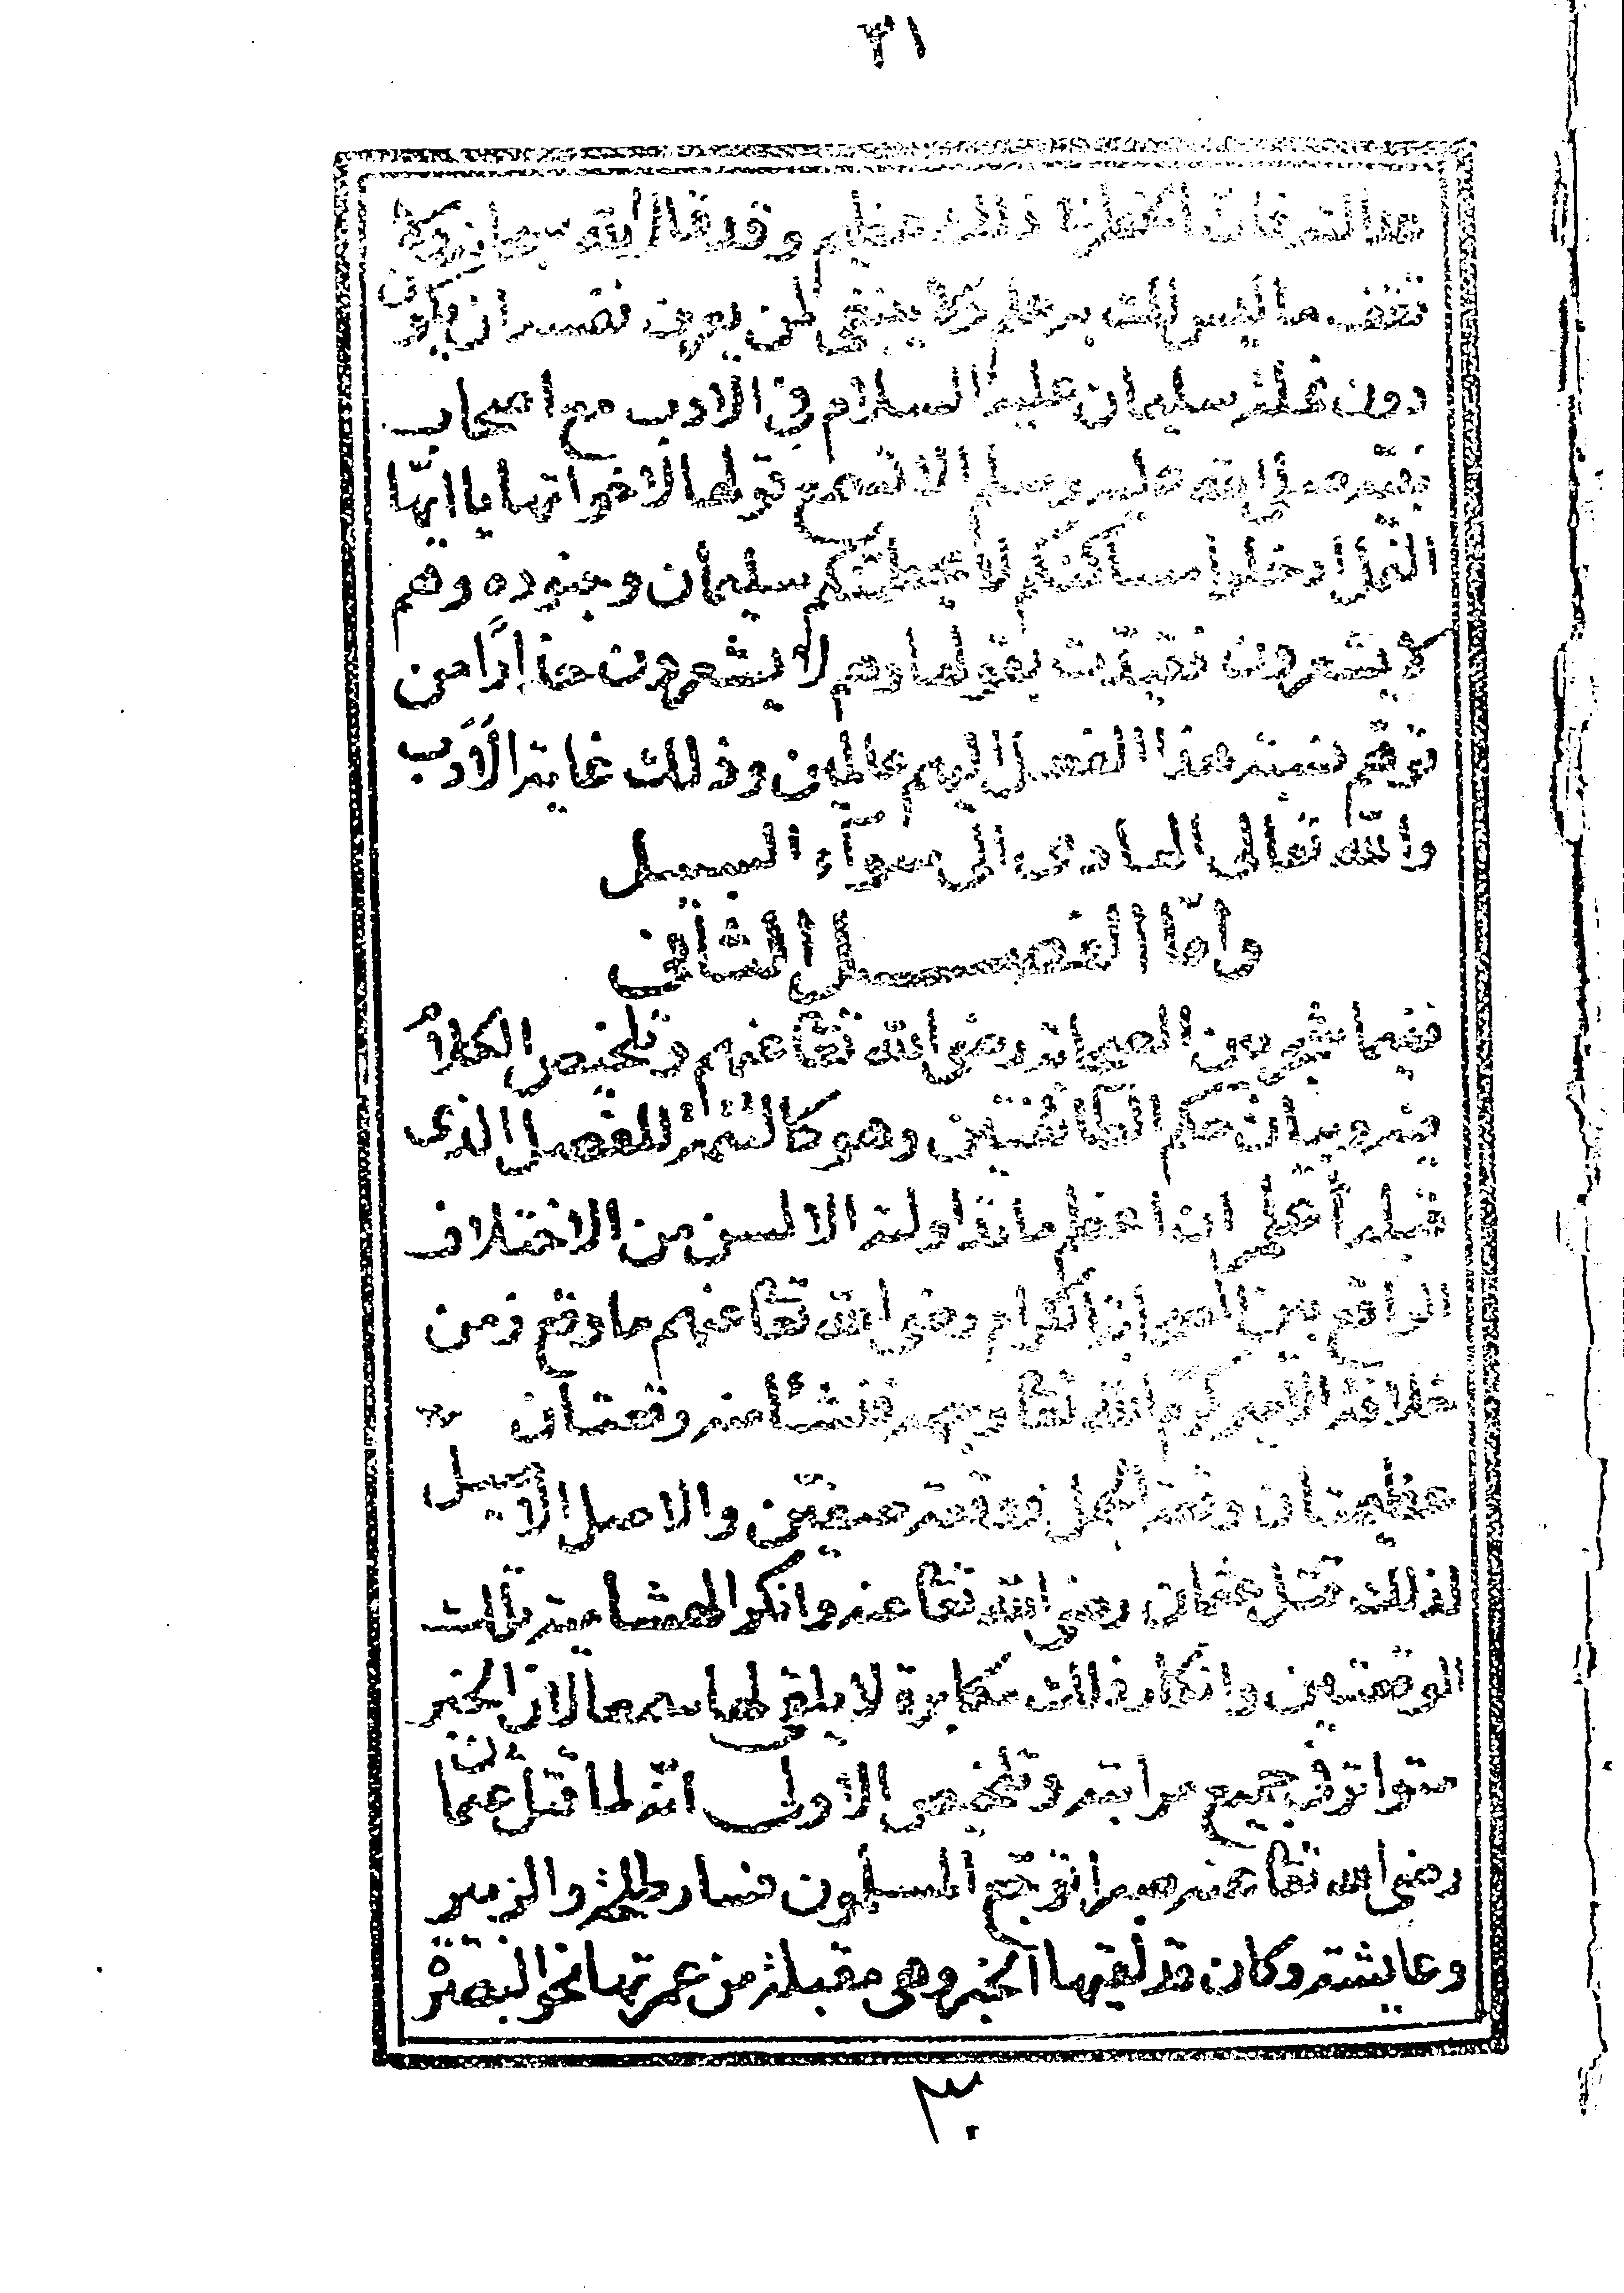 ٣١
هذا الشرفان الخطر في ذلك عظيم وقد قال الله سبحانه ولا
تقف ما ليس لك به علم ولا ينبغي لمن يعرف نفسه ان يكون
دون نملة سليمان عليه السلام في الادب مع اصحاب
نبيه صلى الله عليه وسلم الا تسمع قولها لاخواتها يا ايها
النمل ادخلوا مساكنكم لا يحطمنكم سليمان وجنوده وهم
لا يشعرون فقيدت بقولها وهم لا يشعرون حذارًا من
توهم نسبة هذا الفعل اليهم عالمين وذلك غاية الأدب
والله تعالى الهادى الى سوآء السبيل
واما الفصل الثانى
فيما شجر بين الصحابة رضى الله تعا عنهم وتلخيص الكلام
فيه وبيان حكم الطائفتين وهو كالثمرة للفصل الذى
قبله اعلم ان اعظم ما تداولته الالسن من الاختلاف
الواقع بين الصحابة الكرام رضى الله تعا عنهم ما وقع زمن
خلافة الامير كرم الله تعا وجهه فنشأ منه وقعتان
عظيمتان وقعة الجمل ووقعة صفين والاصل الاصيل
لذلك قتل عثمان رضى الله تعا عنه وانكر الهشامية تلك
الوقعتين وانكار ذلك مكابرة لا يلتفت لها سمعا لان الخبر
متواتر في جميع مراتبه وتلخيص الاول انه لما قتل عثمان
رضى الله تعا عنه صبرا توجع المسلمون فسار طلحة والزبير
وعايشة وكان قد لقيها الخبر وهى مقبلة من عمرتها نحو البصرة
٣٠